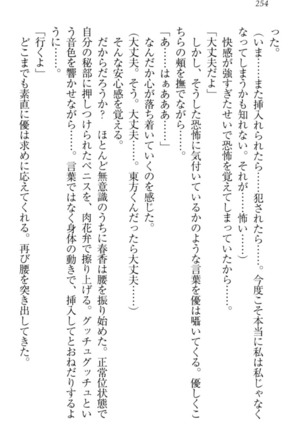 254
った。
(いま……また挿入れられたら……犯されたら……。今度こそ本当に私は私じゃなく
なってしまうかも知れない。それが……怖い……)
快感が強すぎたせいで恐怖を覚えてしまっていたから……。
「大丈夫だよ」
しかし、そうした恐怖に気付いているかのような言葉を優は囁いてくる。優しくこ
ちらの頬を撫でながら……。
「あ……はぁあああ……」
なんだか心が落ち着いていくのを感じた。
(大丈夫。そう。大丈夫……。東方くんだったら大丈夫……)
そんな安心感を覚える。
だからだろうか? ほとんど無意識のうちに春香は腰を振り始めた。正常位状態で
自分の秘部に押しつけられたペニスを、肉花弁で擦り上げる。グッチュグッチュとい
う音色を響かせながら……。言葉ではなく身体の動きで、挿入してとおねだりするよ
うに……。
「行くよ」
どこまでも素直に優は求めに応えてくれる。再び腰を突き出してきた。